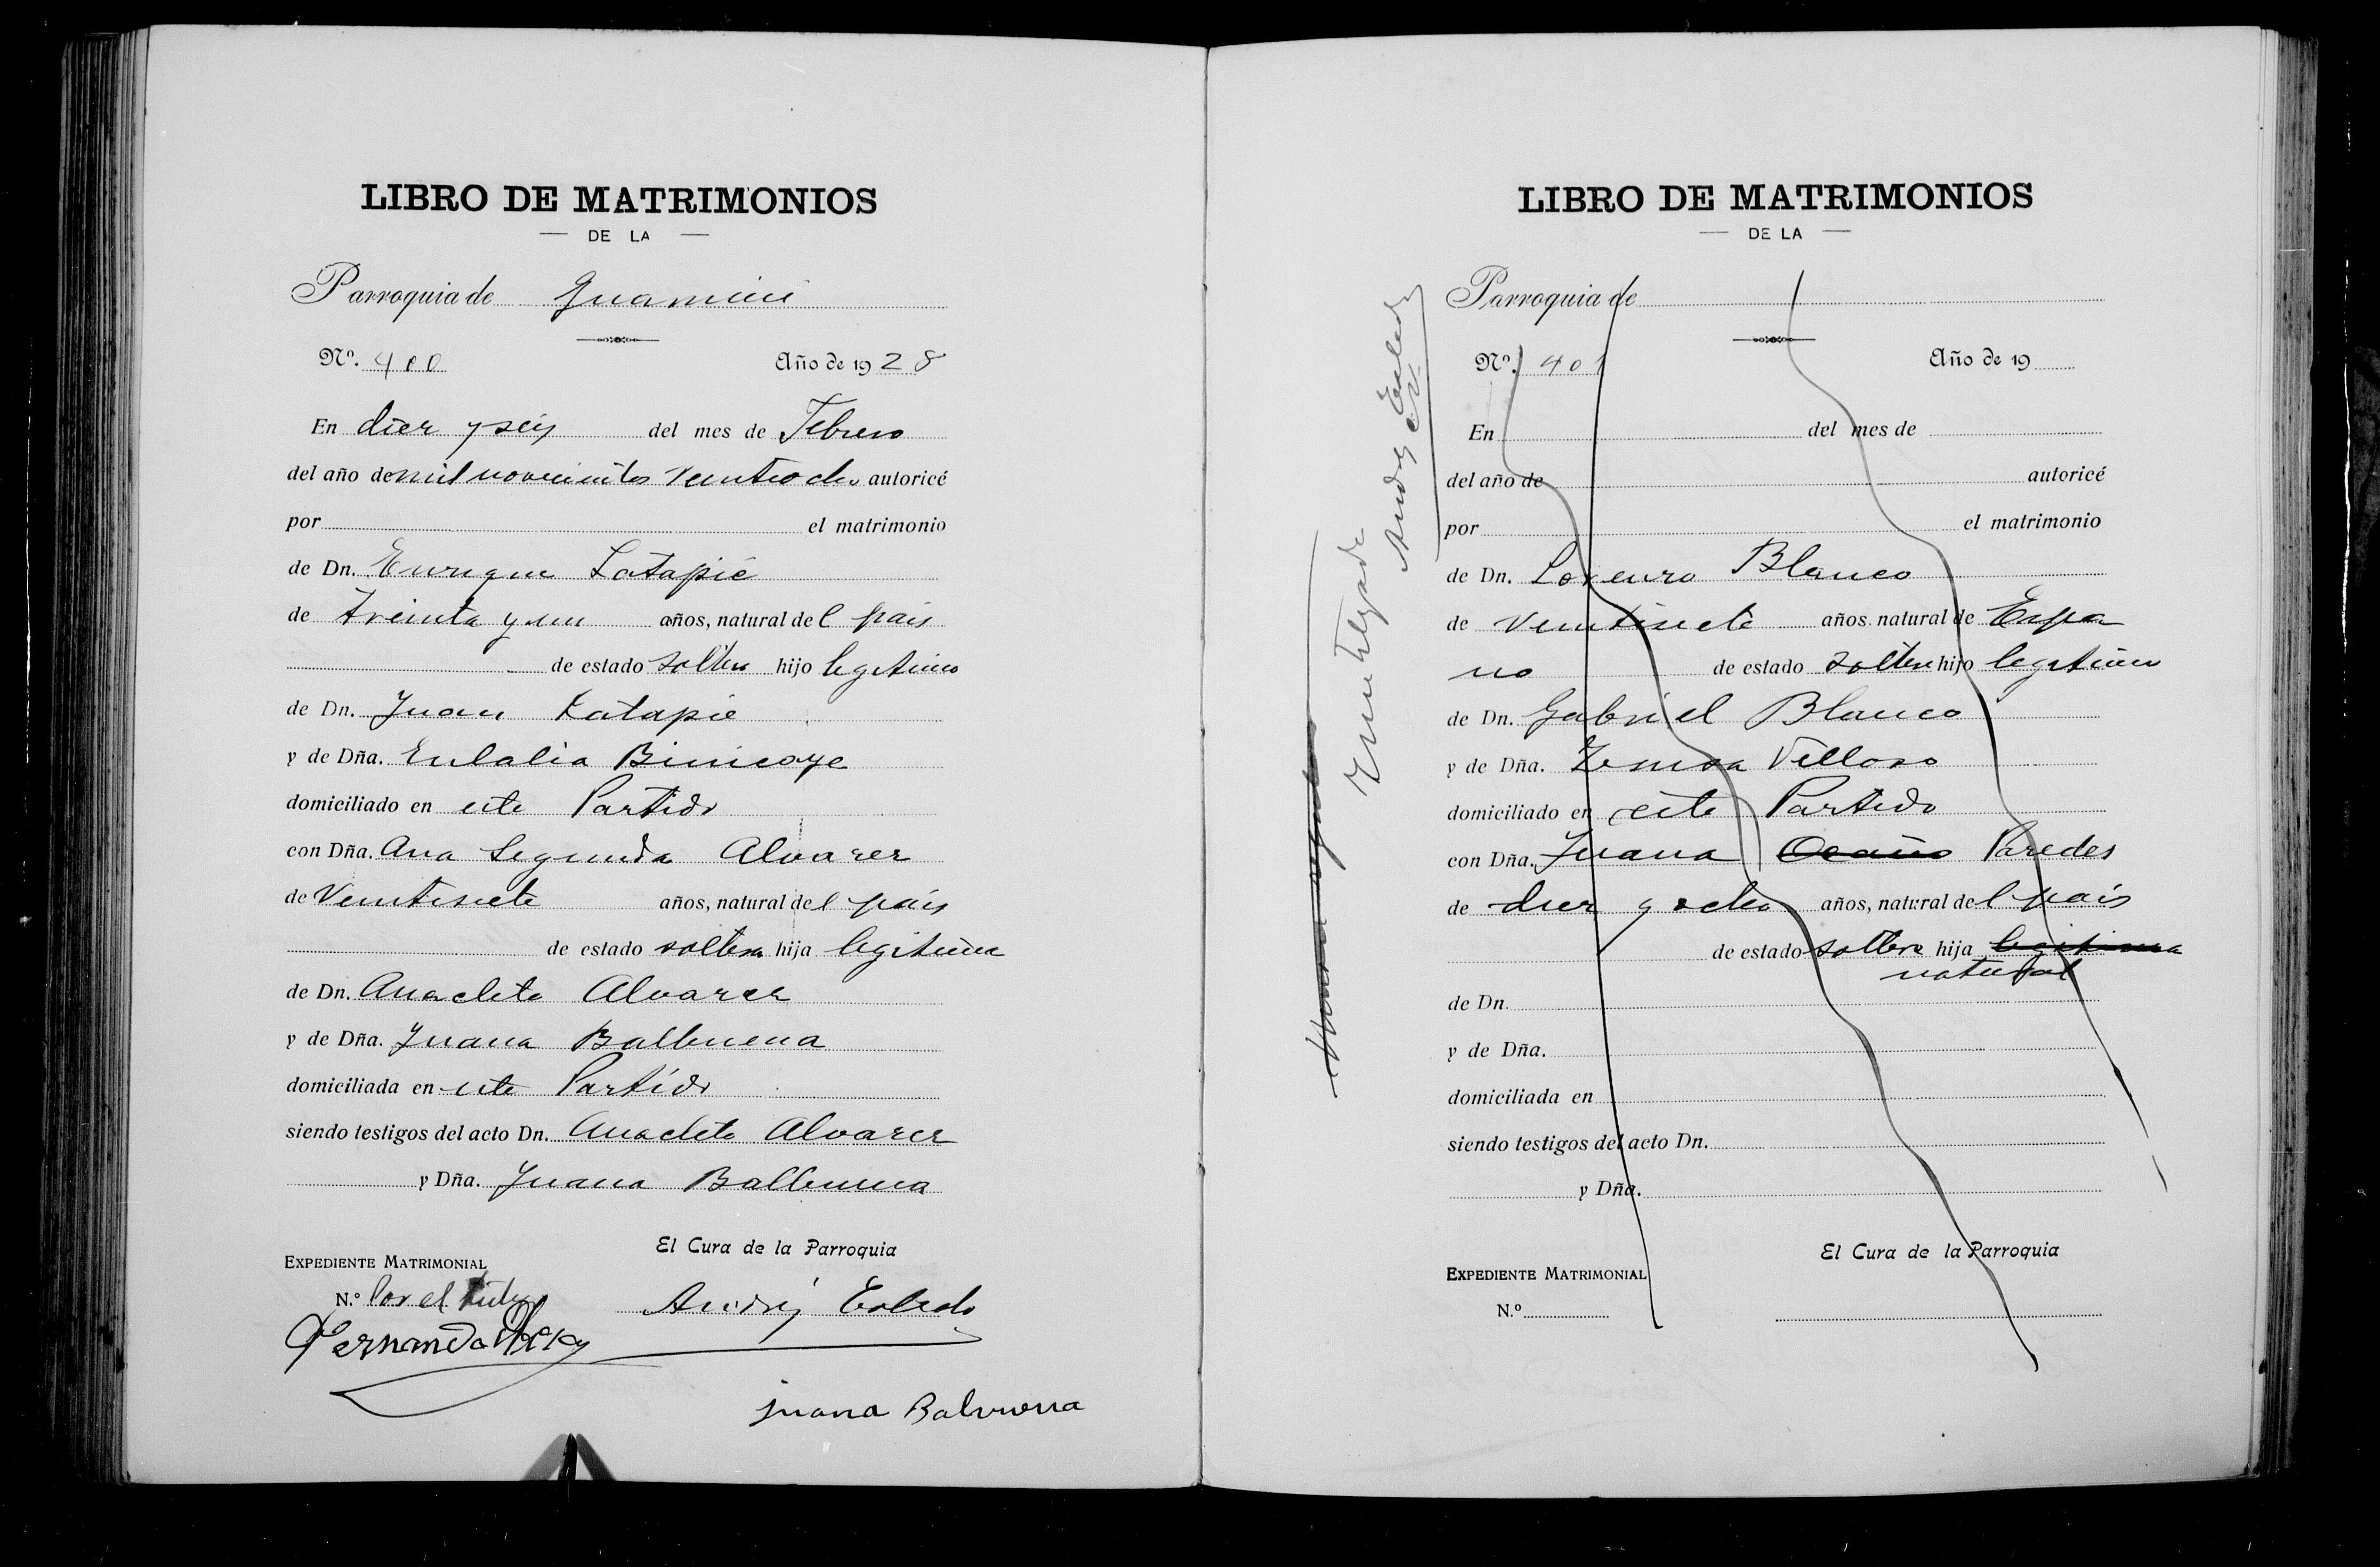 LIBRO DE MATRIMONIOS
DE LA
Parroquia de Guamini
Nº. 400 Año de 1928
En diez y seis del mes de Febrero
del año de mil novecientos veintiocho autoricé
por el matrimonio
de Dn. Enrique Latapié
de treinta y un años, natural del país
de estado soltero hijo legitimo
de Dn. Juan Latapié
y de Dña. Eulalia
domiciliado en este Partido
con Dña. Ana Segunda Alvarez
de Veintisiete años, natural del país
de estado soltera hija legitima
de Dn. Anacleto Alvarez
y de Dña. Juana Balbuena
domiciliada en este Partido
siendo testigos del acto Dn. Anacleto Alvarez
y Dña. Juana Balbuena
EXPEDIENTE MATRIMONIAL
El Cura de la Parroquia
N.º Por el
Andrés
Fernando
Juana
LIBRO DE MATRIMONIOS
DE LA
Parroquia de
Nº. 401 Año de 19
En del mes de
del año de autoricé
por el matrimonio
de Dn. Lorenzo Blanco
de Veintisiete años. natural de Espa
no de estado soltero hijo legitimo
de Dn. Gabriel Blanco
y de Dña. Villoso
domiciliado en este Partido
con Dña. Juana Ocaño Paredes
de diez y ocho años, natural del país
de estado soltera hija legitima
natural
de Dn.
y de Dña.
domiciliada en
siendo testigos del acto Dn.
y Dña.
EXPEDIENTE MATRIMONIAL
El Cura de la Parroquia
N.º
Inutilizado
Andrés